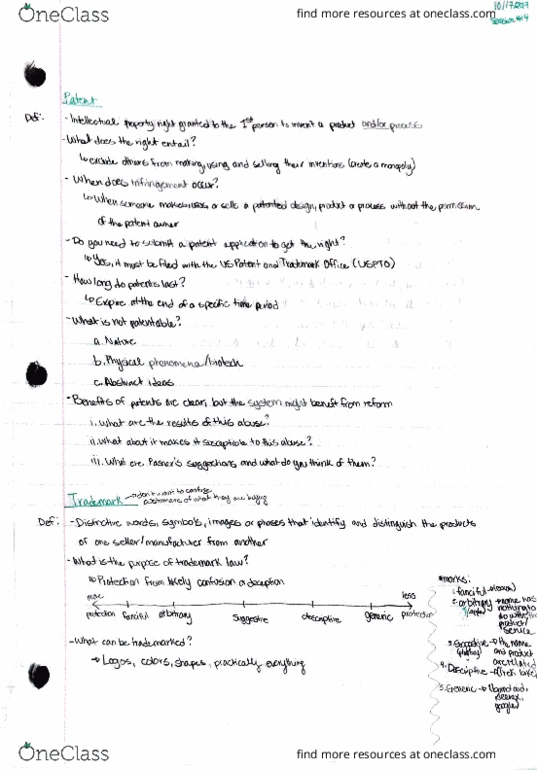 OneClass
find more resources at oneclass.com
10/17/2017
Session #14
Patent
Def: - Intellectual property right granted to the 1st person to invent a product and/or process
- What does the right entail?
↳ exclude others from making, using and selling their inventions (create a monopoly)
- When does infringement occur?
↳ When someone makes, uses or sells a patented design, product or process without the permission
of the patent owner
- Do you need to submit a patent application to get the right?
↳ Yes, it must be filed with the US Patent and Trademark Office (USPTO)
- How long do patents last?
↳ Expire at the end of a specific time period
- What is not patentable?
a. Nature
b. Physical phenomena/biotech
c. Abstract ideas
- Benefits of patents are clear, but the system might benefit from reform
i. What are the results of this abuse?
ii. What about it makes it susceptible to this abuse?
iii. What are Posner's suggestions and what do you think of them?
Trademark → don't want to confuse
customers of what they are buying
Def: - Distinctive words, symbols, images or phases that identify and distinguish the products
of one seller/manufacturer from another
- What is the purpose of trademark law?
Protection from likely confusion or deception
more less
protection fanciful arbitrary suggestive descriptive generic protection
- What can be trademarked?
→ Logos, colors, shapes, practically everything
*marks:
1. fanciful →
2. arbitrary → name has
(apple) nothing to
do with the
product/
service
3. Suggestive → the name
and product
are related
4. Descriptive →
5. Generic →
OneClass
find more resources at oneclass.com